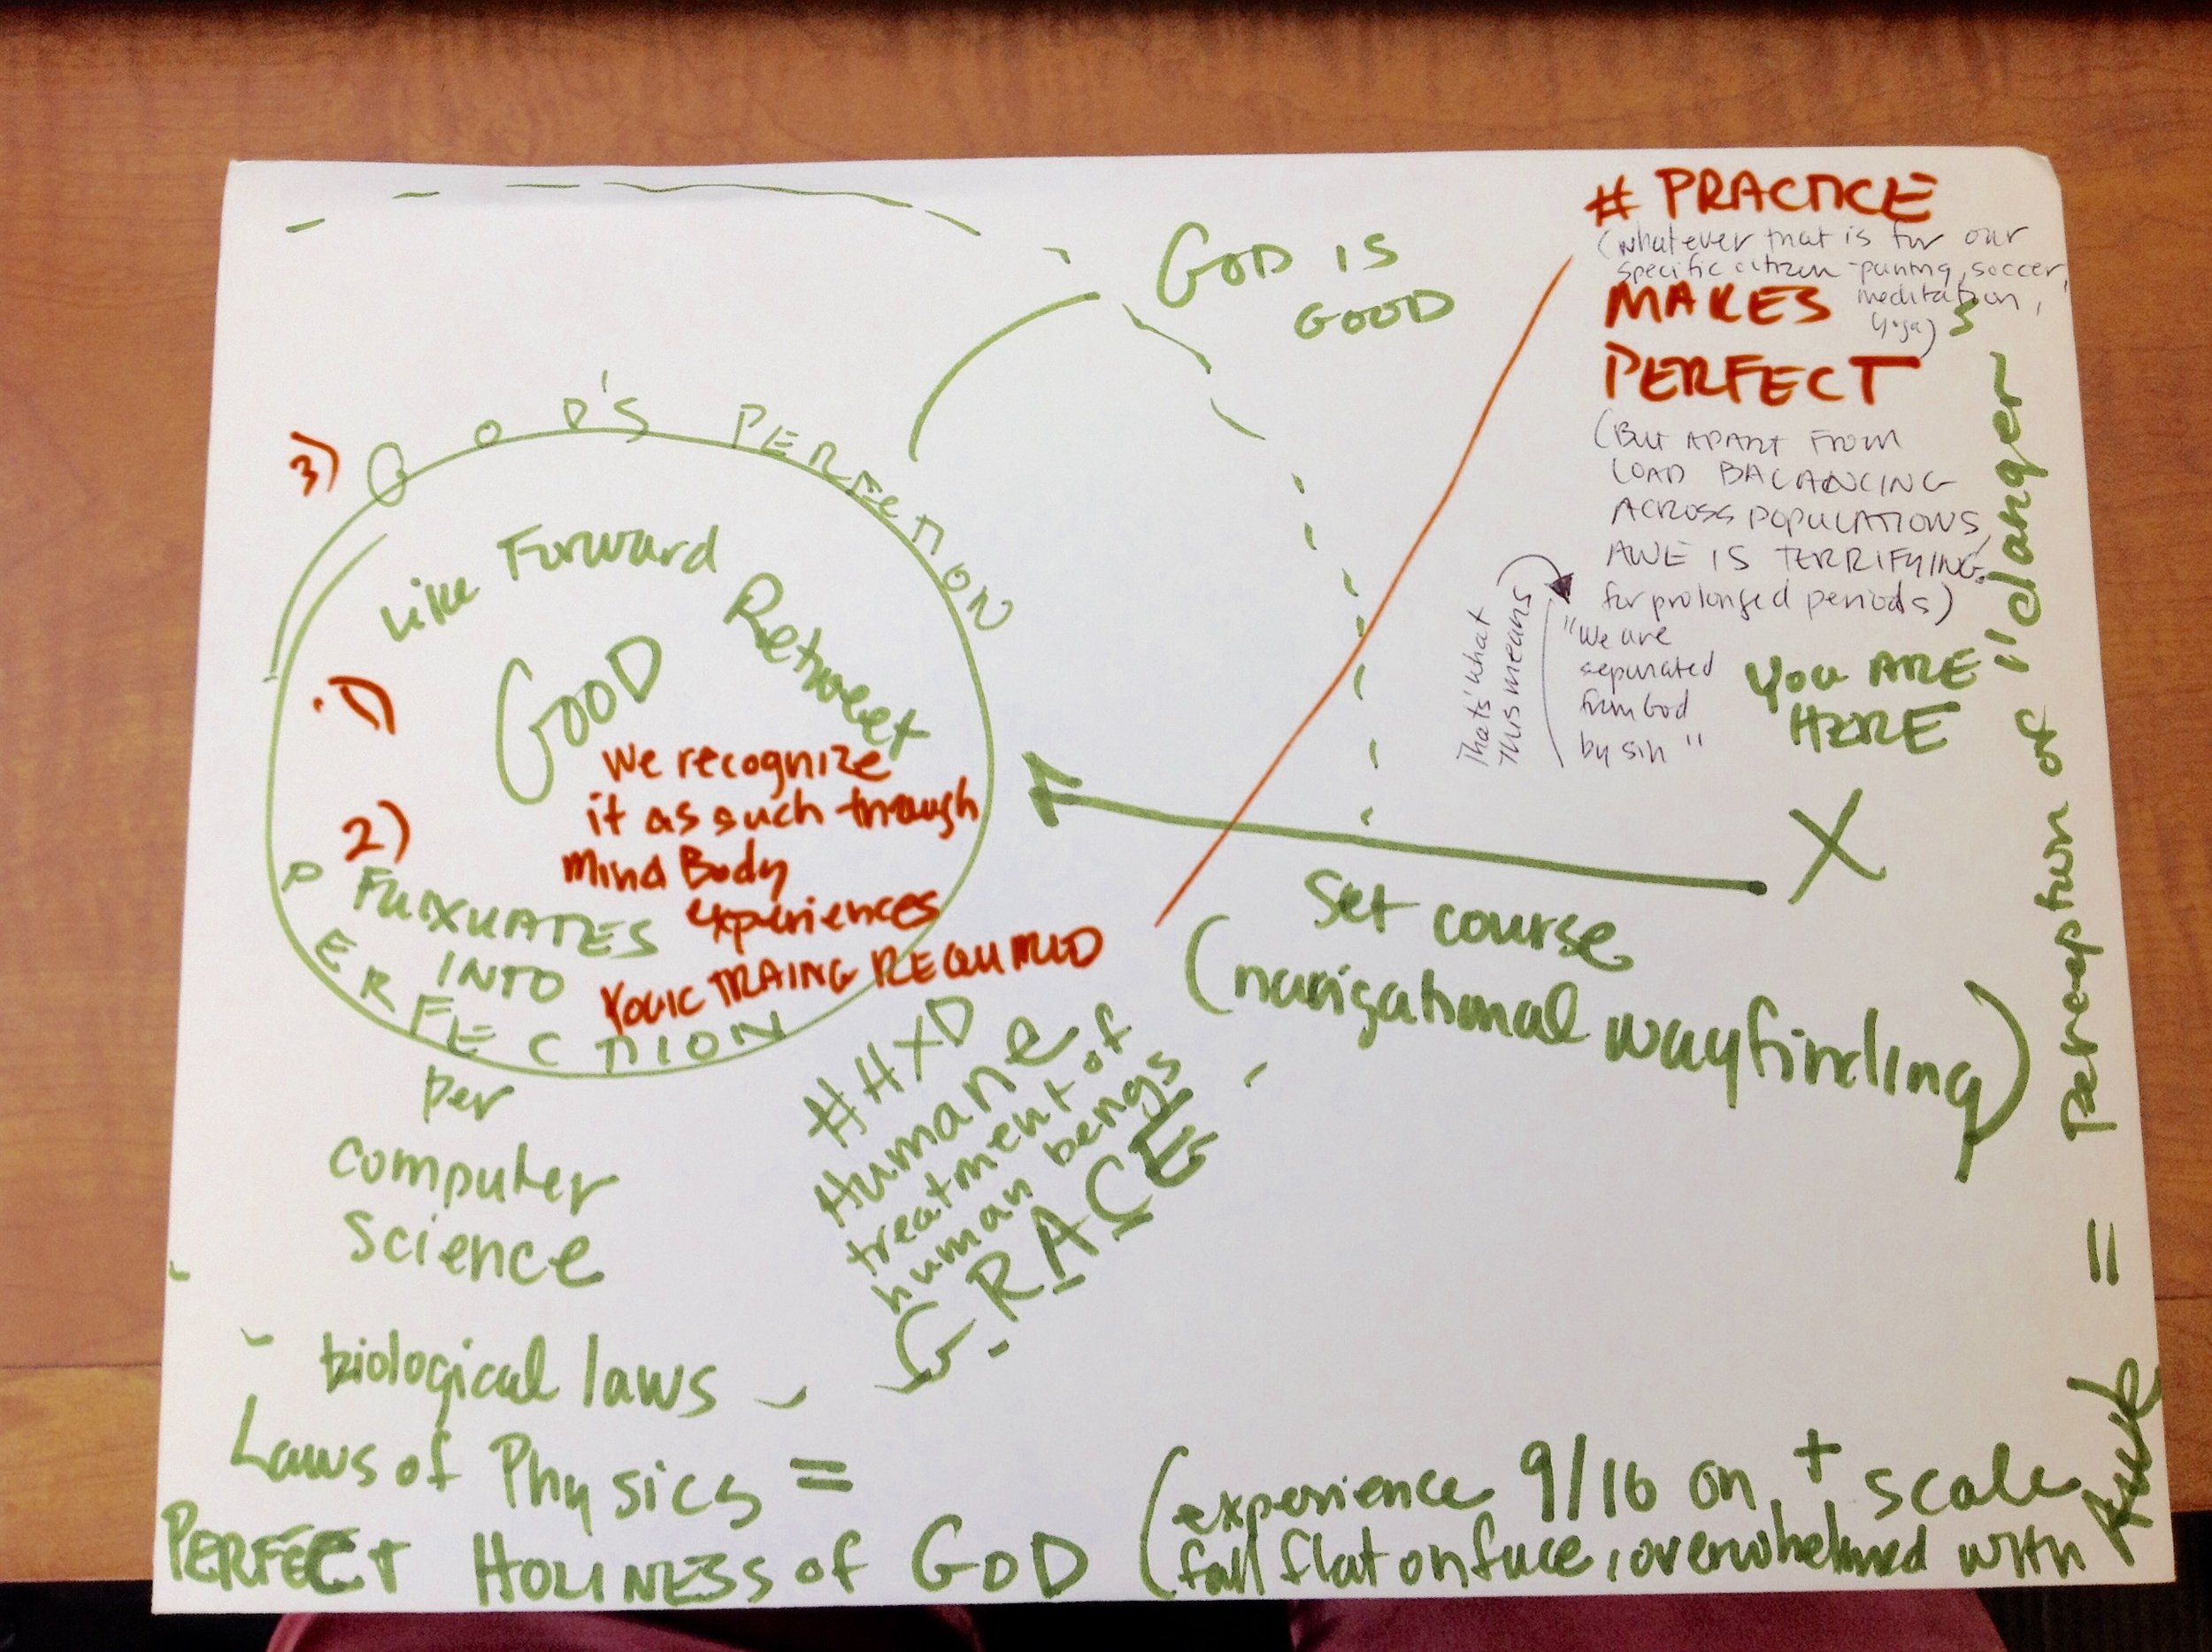 # PRACTICE
(whatever that is for our
specific citizen - painting, soccer,
MAKES meditation,
yoga)
PERFECT
(BUT APART FROM
LOAD BALANCING
ACROSS POPULATIONS,
AWE IS TERRIFYING
for prolonged periods)
That's what
this means
"We are
separated
from God
by sin"
YOU ARE
HERE
X
GOD IS
GOOD
3)
GOD'S PERFECTION
Like Forward Retweet
1)
GOOD
We recognize
it as such through
Mind Body
experiences
YOGIC TRAING REQUIRED
2)
INTO
PERFECTION
per
computer
science
biological laws
Laws of Physics =
PERFECT HOLINESS of GOD
#HXD
Humane
treatment of
human beings
GRACE
Set course
(navigational wayfinding)
(experience 9/16 on + scale
fall flat on face, overwhelmed with
Awe = perception of "danger